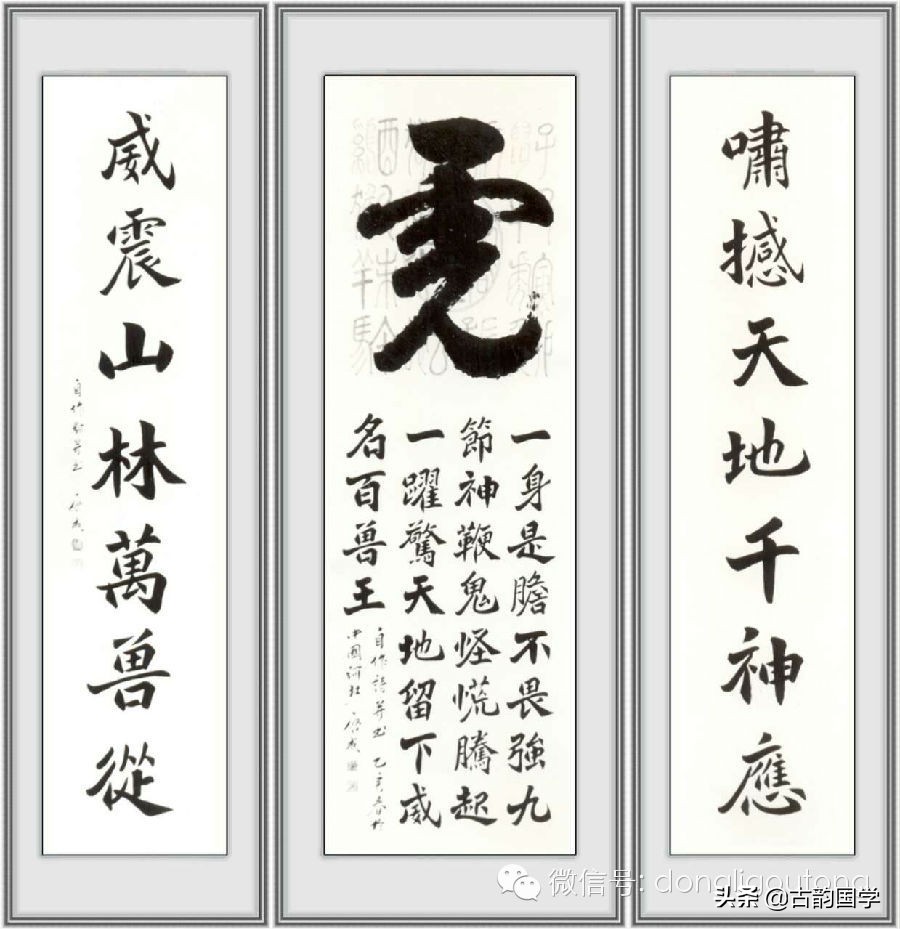 嘯撼天地千神應
虎
一身是膽不畏強九
節神鞭鬼怪慌騰起
一躍驚天地留下威
名百兽王
自作詩并書乙亥春於
威震山林萬兽從
微信号: dongligoutong
头条 @古韵国学